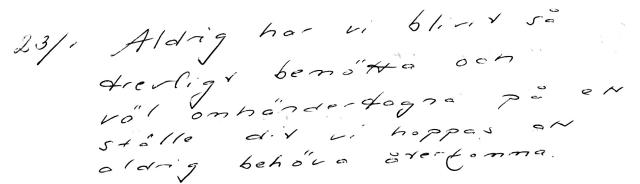 23/1 Aldrig har vi blivit så
trevligt bemötta och
väl omhändertagna på ett
ställe dit vi hoppas att
aldrig behöva återkomma.